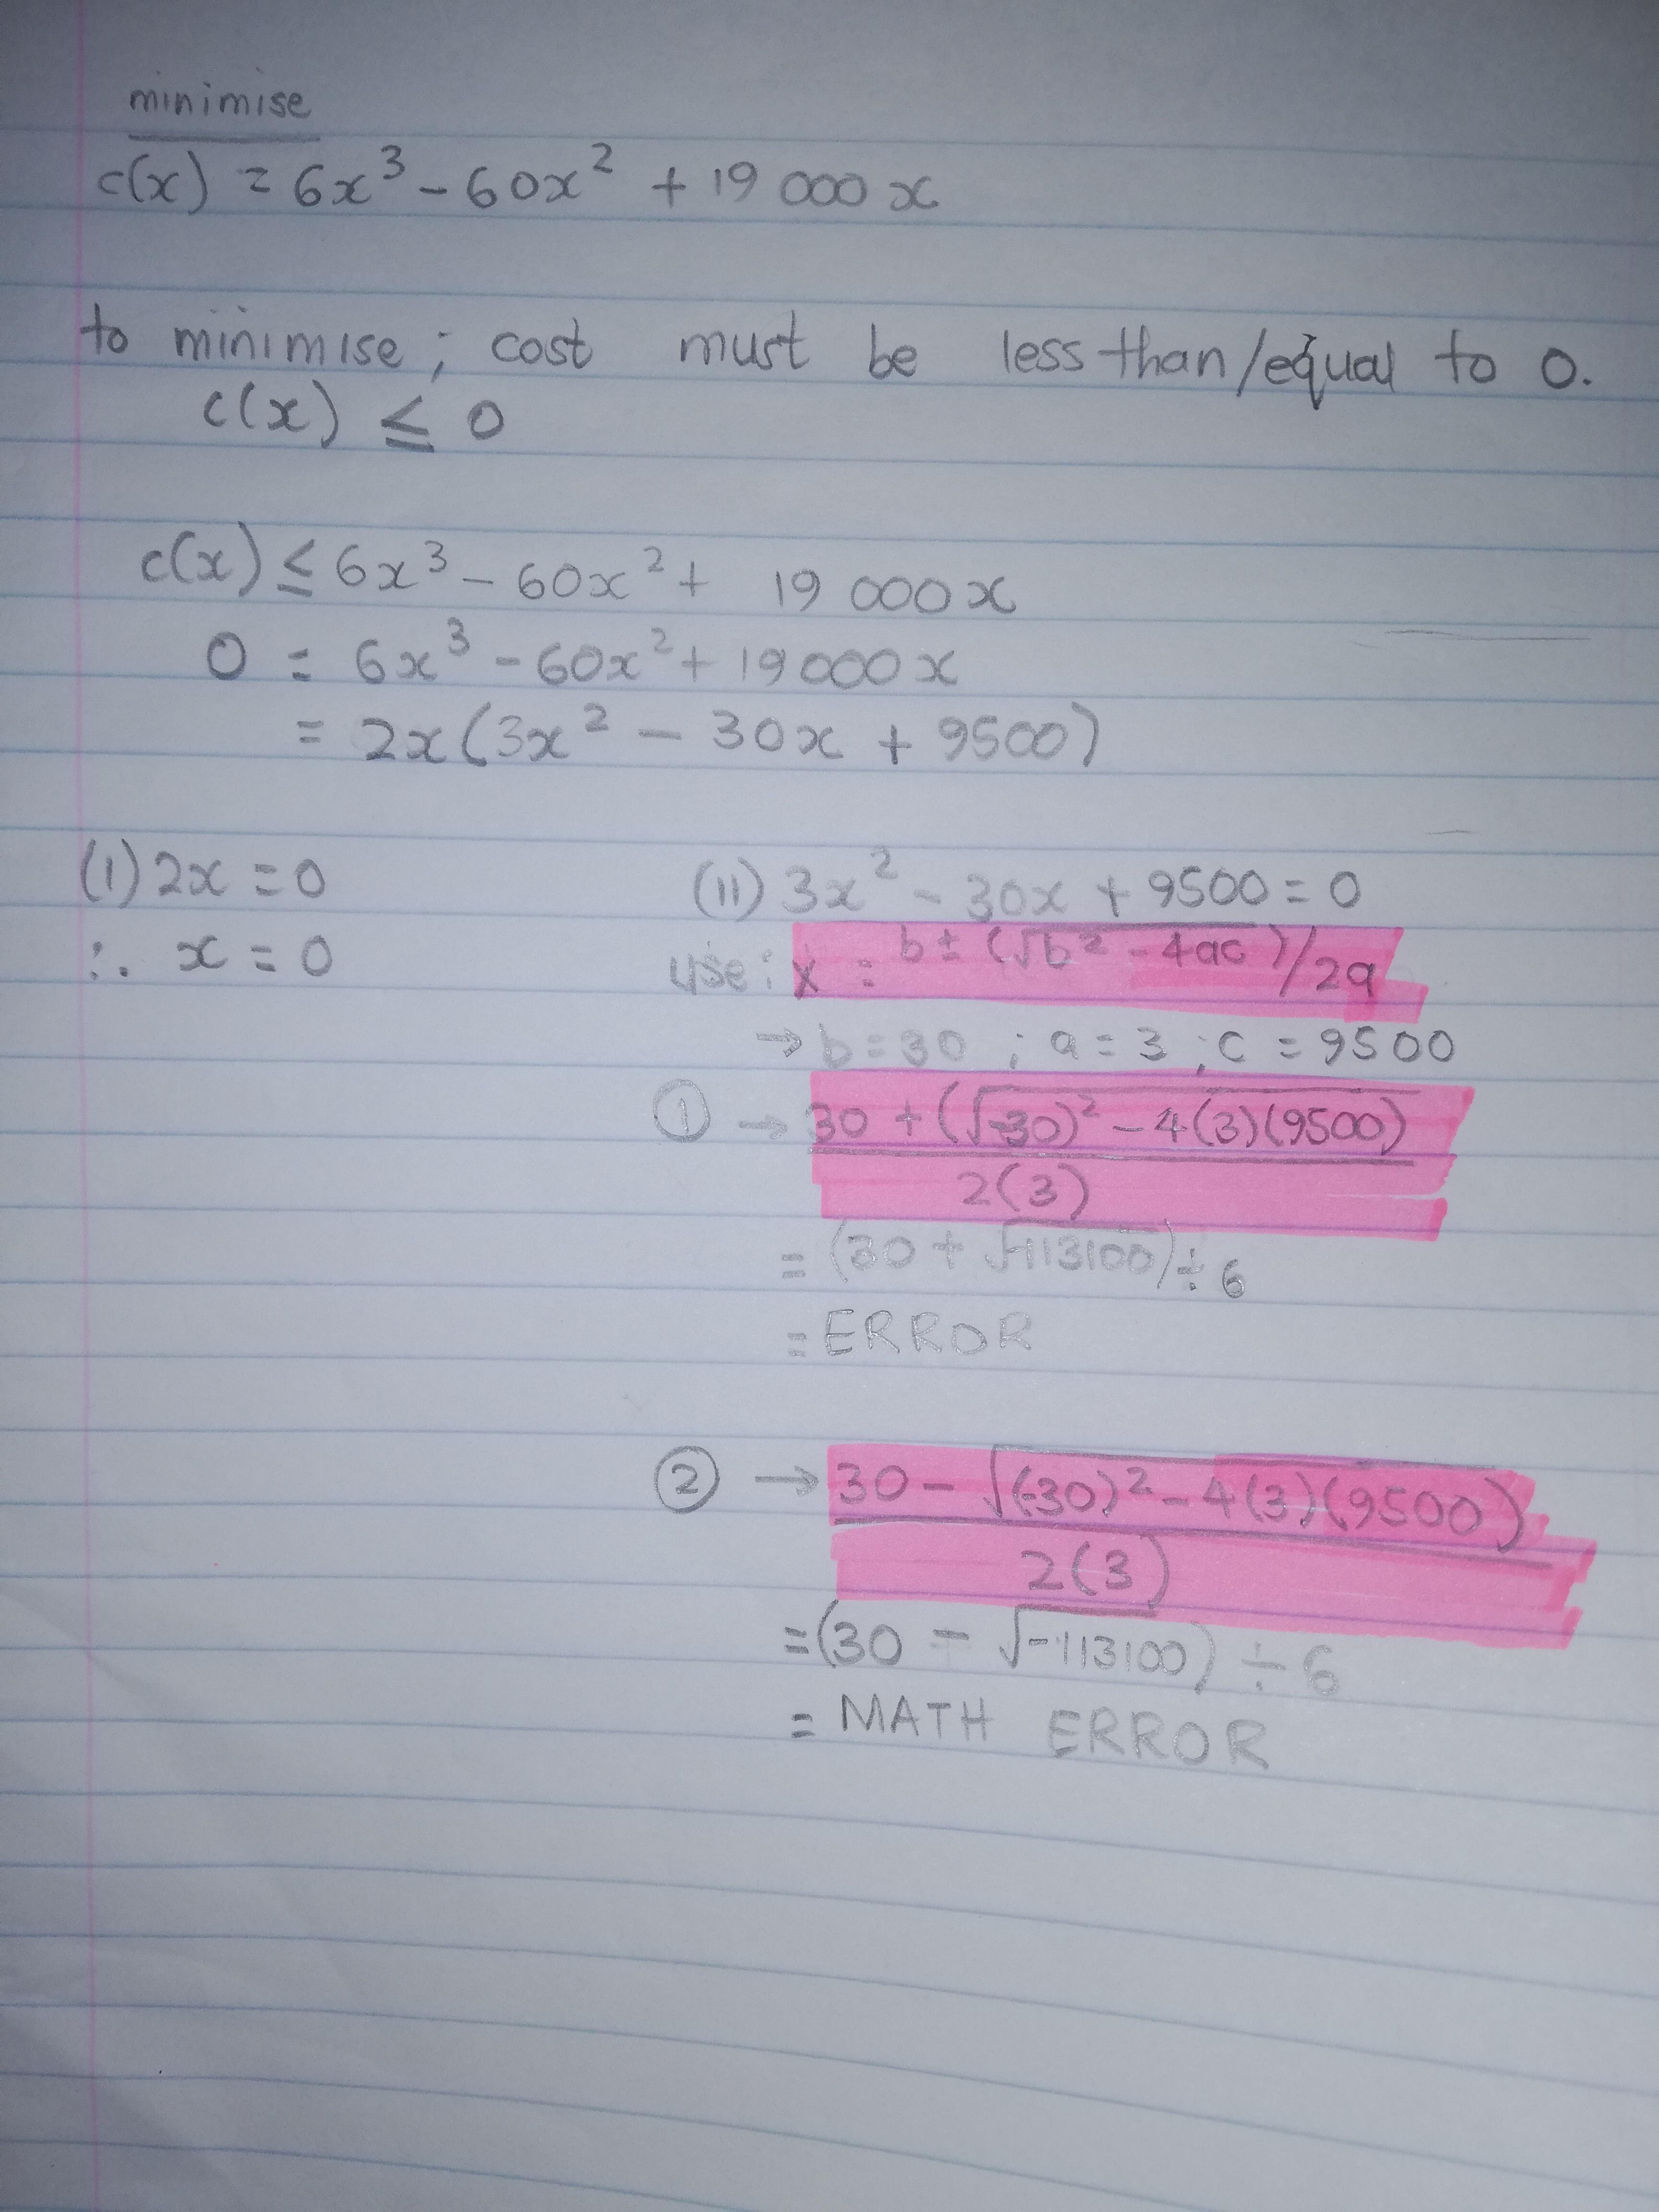 minimise
c(x) = 6x³ - 60x² + 19 000 x
to minimise; cost must be less than/equal to 0.
c(x) ≤ 0
c(x) ≤ 6x³ - 60x² + 19 000 x
0 = 6x³ - 60x² + 19 000 x
= 2x(3x² - 30x + 9500)
(i) 2x = 0
∴ x = 0
(ii) 3x² - 30x + 9500 = 0
use: x = b ± (√b² - 4ac)/2a
→ b = 30 ; a = 3 ; c = 9500
① → 30 + (√-30)² - 4(3)(9500)
2(3)
= (30 + √-113100) ÷ 6
= ERROR
② → 30 - √(-30)² - 4(3)(9500)
2(3)
= (30 - √-113100) ÷ 6
= MATH ERROR